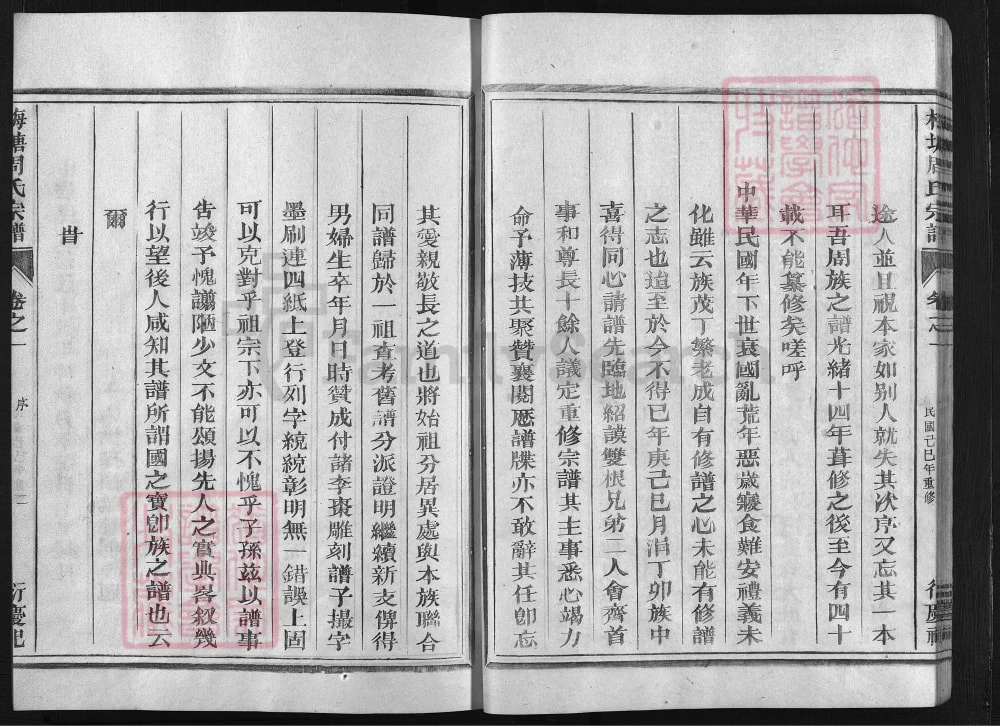 周氏宗譜
卷之一
民國己巳年重修
途人並且視本家如别人就失其次序又忘其一本
耳吾周族之譜光緒十四年葺修之後至今有四十
載不能纂修矣嗟呼
中華民國年下世衰國亂荒年惡歲寢食難安禮義未
化雖云族茂丁繁老成自有修譜之心未能有修譜
之志也迨至於今不得已年庚己巳月涓丁卯族中
喜得同心請譜先臨地紹謨雙根兄弟二人會齊首
事和尊長十餘人議定重修宗譜其主事悉心竭力
命予薄技共聚贊襄閱愿譜牒亦不敢辭其任卽忘
其愛親敬長之道也將始祖分居異處與本族聯合
同譜歸於一祖查考舊譜分派證明繼續新支俾得
男婦生卒年月日時贊成付諸李棗雕刻譜子撮字
墨刷連四紙上登行列字統統彰明無一錯誤上固
可以克對乎祖宗下亦可以不愧乎子孫茲以譜事
告竣予愧譾陋少文不能頌揚先人之實典畧叙幾
行以望後人咸知其譜所謂國之寶卽族之譜也云
爾
旹
梅塘周氏宗譜
卷之一
序
衍慶祀